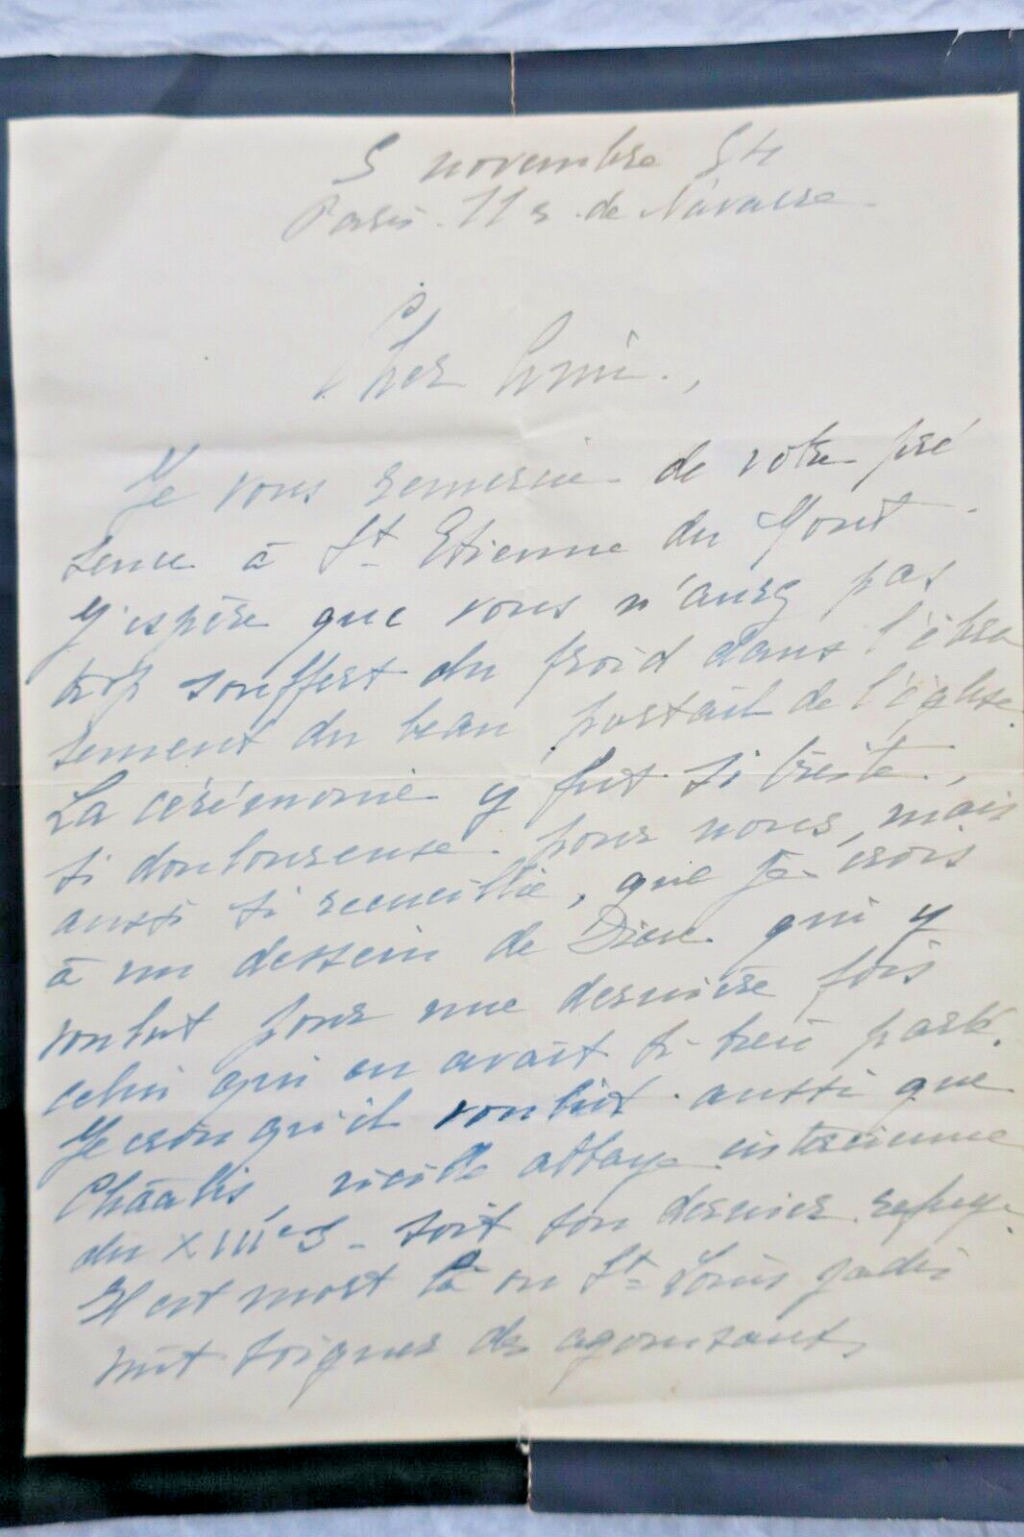 5 novembre 54
Paris. 11 r. de Navarre.
Cher Ami.,
Je vous remercie de votre pré
sence à St Etienne du Mont.
J'espère que vous n'aurez pas
trop souffert du froid dans l'ébra
sement du beau portail de l'église.
La cérémonie y fut si triste,
si douloureuse pour nous, mais
aussi si recueillie, que je crois
à un dessein de Dieu qui y
voulut pour une dernière fois
celui qui en avait si bien parlé.
Je crois qu'il voulut aussi que
Châalis, vieille abbaye cistercienne
du XIIIe S. soit son dernier refuge.
Il est mort là où St Louis jadis
vint soigner des agonisants,